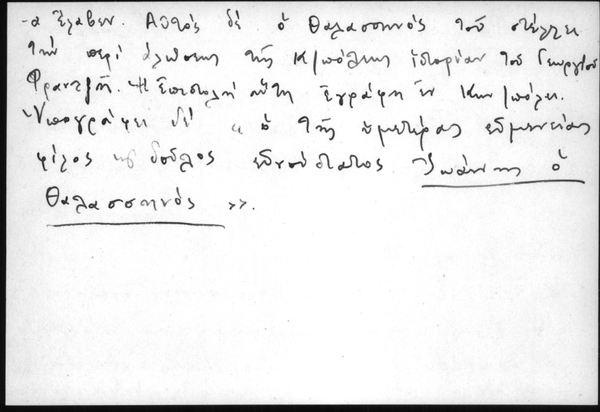 -α ἔλαβεν. Αὐτὸς δὲ ὁ Θαλασσηνὸς τοῦ στέλλει
τὴν περὶ ἁλώσεως τῆς Κ/πόλεως ἱστορίαν τοῦ Γεωργίου
Φραντζῆ. Ἡ ἐπιστολὴ αὕτη ἐγράφη ἐν Κων/πόλει.
Ὑπογράφει δὲ « ὁ τῆς ὑμετέρας εὐμενείας
φίλος καὶ δοῦλος εὐνούστατος Ἰωάννης ὁ
Θαλασσηνός ».